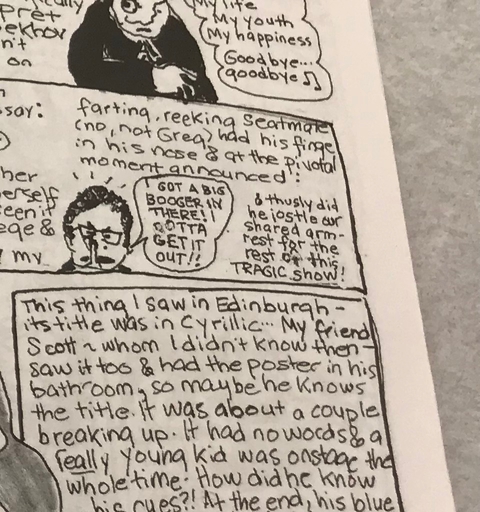 My life
My youth
My happiness
Goodbye...
goodbye ♫
pret
ekhov
n't
on
say:
farting, reeking seatmate
(no, not Greg) had his finge
in his nose & at the pivotal
moment announced:
her
erself
seen it
ege &
my
I GOT A BIG
BOOGER IN
THERE!!
GOTTA
GET IT
OUT!!
& thusly did
he jostle our
shared arm-
rest for the
rest of this
TRAGIC show!
This thing I saw in Edinburgh -
its title was in Cyrillic... My friend
Scott ~ whom I didn't know then -
saw it too & had the poster in his
bathroom, so maybe he knows
the title. It was about a couple
breaking up. It had no words & a
really young kid was onstage the
whole time. How did he know
his cues?! At the end, his blue